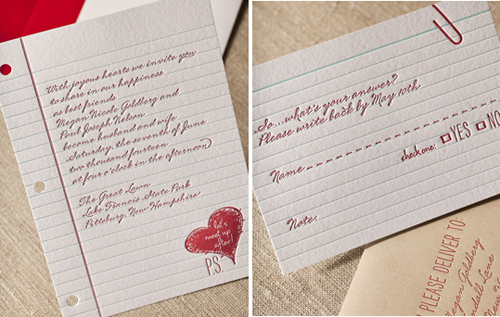 With joyous hearts we invite you
to share in our happiness
as best friends
Megan Nicole Goldberg and
Paul Joseph Nelson
become husband and wife
Saturday, the seventh of June
two thousand fourteen
at four o'clock in the afternoon
The Great Lawn
Lake Francis State Park
Pittsburg, New Hampshire
let's
meet up
after!
P.S.
So...what's your answer?
Please write back by May 10th
Name
check one: YES NO
Note:
PLEASE DELIVER TO:
Megan Goldberg
Lane